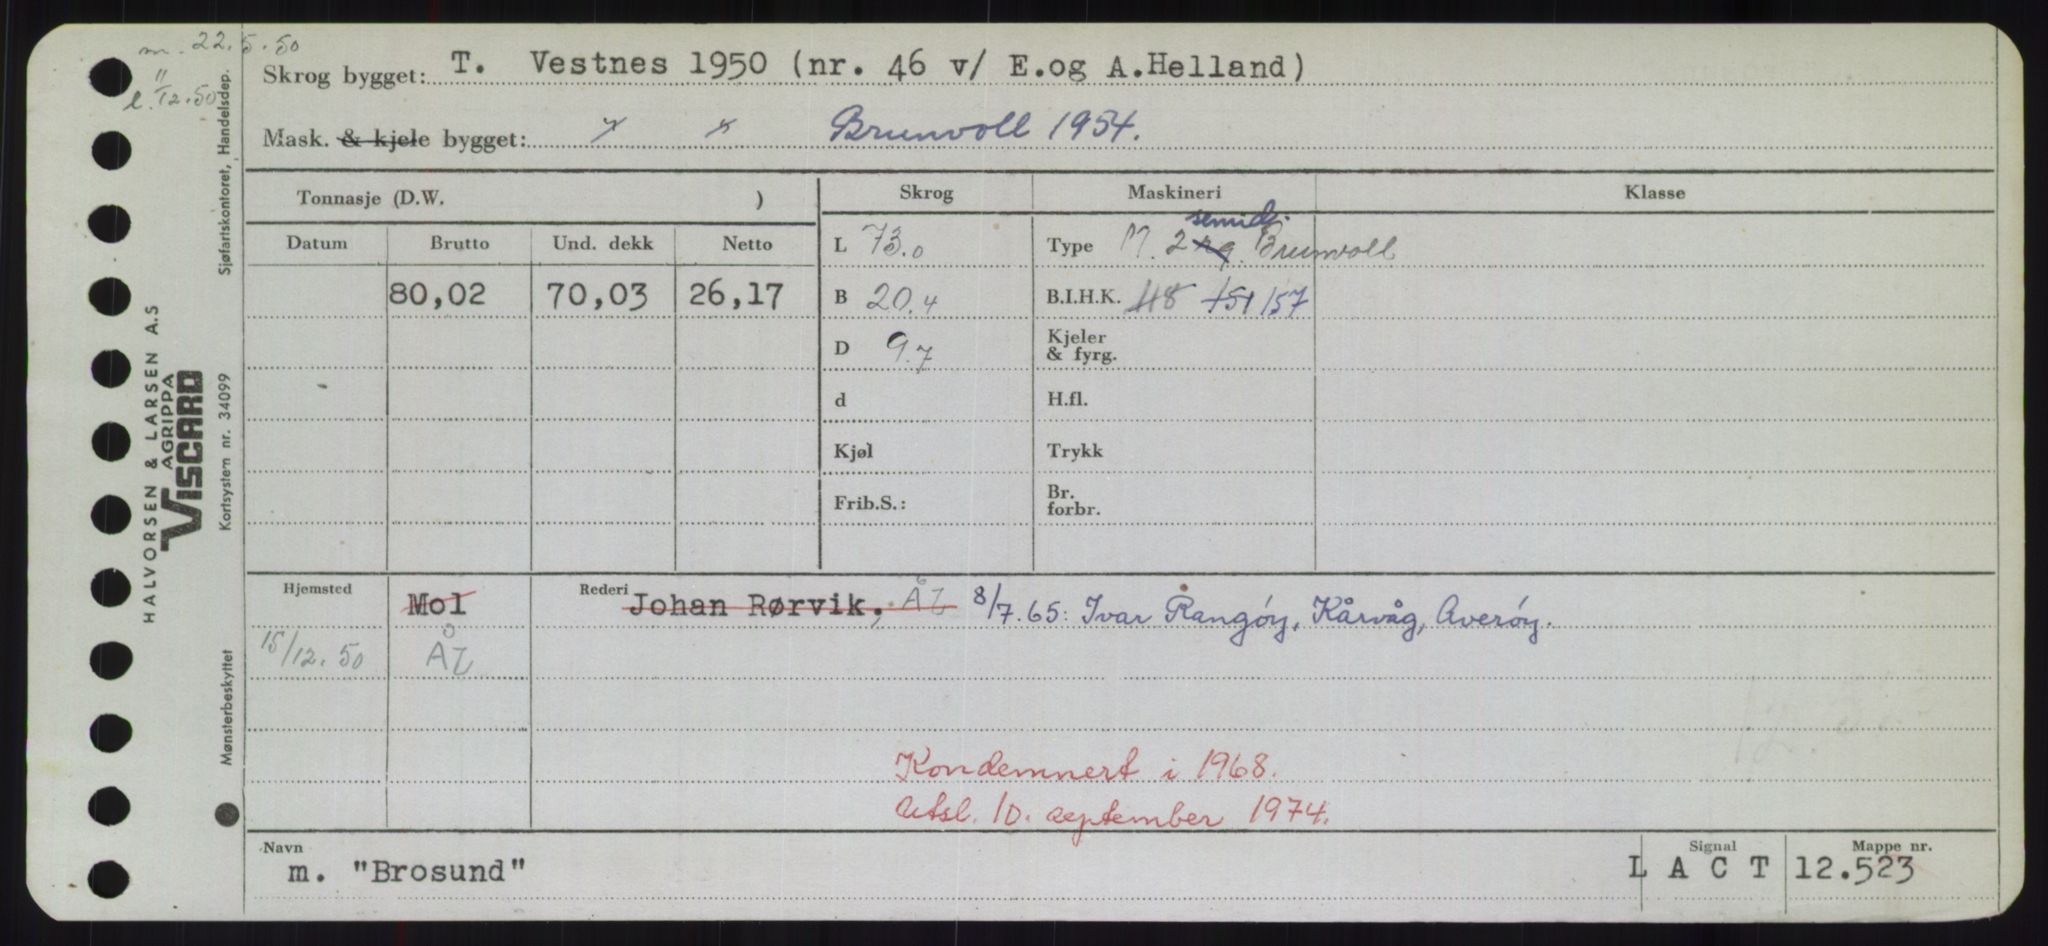 m. 22.5.50
l. "/12.50
Skrog bygget: T. Vestnes 1950 (nr. 46 v/ E.og A.Helland)
Mask. & kjele bygget: " " Brunvoll 1954.
Tonnasje (D.W. )
Skrog Maskineri Klasse
Datum Brutto Und. dekk Netto
80,02 70,03 26,17
L 73.0
B 20.4
D 9.7
d
Kjøl
Frib.S.:
semid.
Type M. 2 Brunvoll
B.I.H.K. 118 151 157
Kjeler
& fyrg.
H.fl.
Trykk
Br.
forbr.
Hjemsted Mol Rederi Johan Rørvik, ÅL 8/7.65: Ivar Rangøy, Kårvåg, Averøy.
15/12.50 ÅL
Kondemnert i 1968.
Utsl. 10. september 1974.
Navn Signal Mappe nr.
m. "Brosund" L A C T 12.523
HALVORSEN & LARSEN A.S
AGRIPPA
VISCARD
Sjøfartskontoret, Handelsdep.
Kortsystem nr. 34099
Mønsterbeskyttet